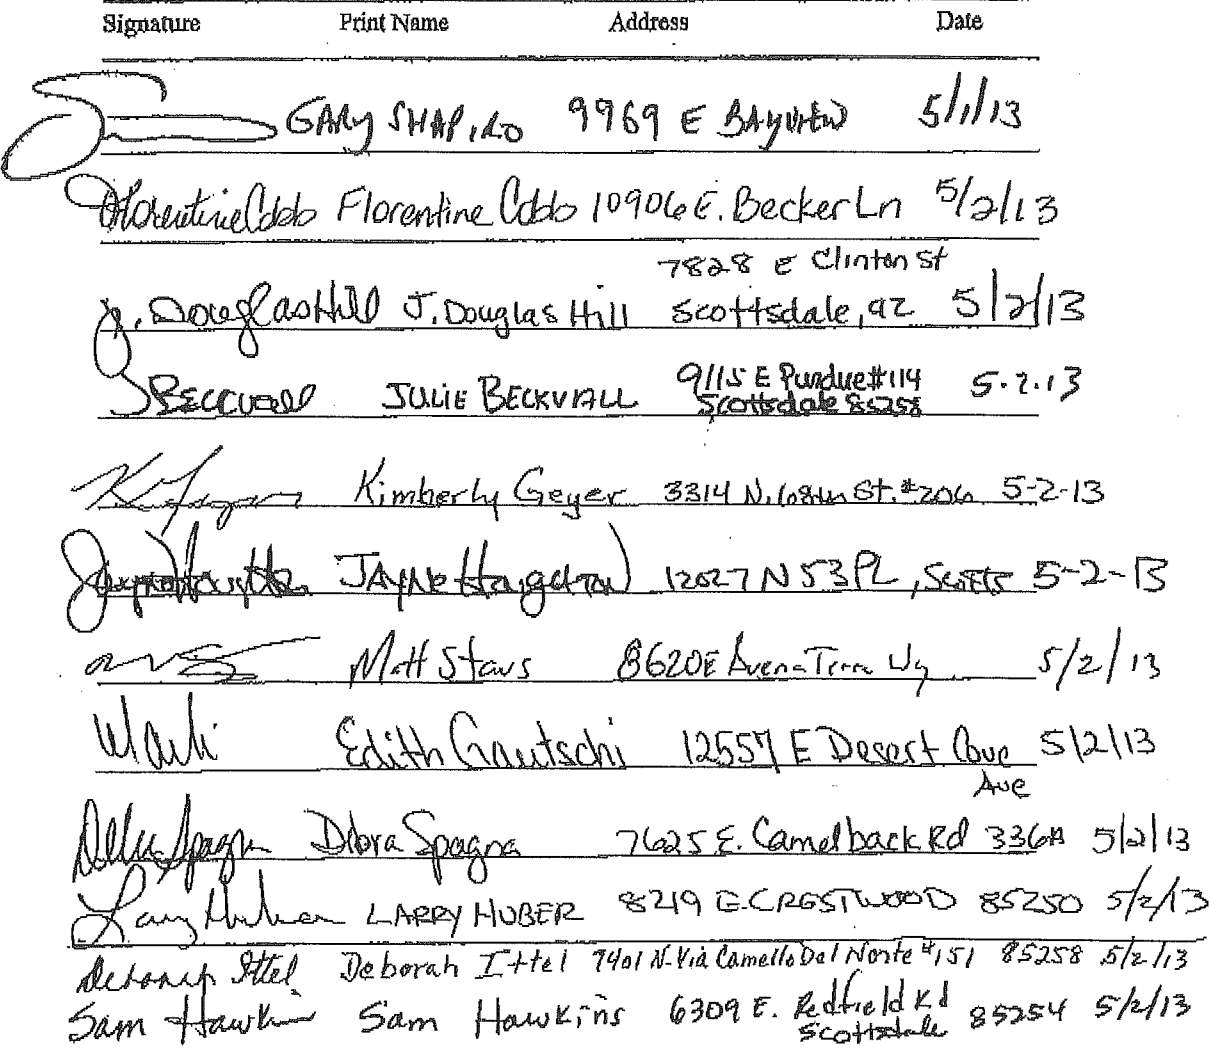 Signature Print Name Address Date
GARY SHAPIRO 9969 E BAYVIEW 5/1/13
Florentine Cobb Florentine Cobb 10906 E. Becker Ln 5/2/13
7828 E Clinton St
J. Douglas Hill J. Douglas Hill Scottsdale, AZ 5/2/13
9115 E Purdue #114
JBECKVALL JULIE BECKVALL Scottsdale 85258 5-2-13
Kimberly Geyer 3314 N. 68th St. #206 5-2-13
JAYNE 12027 N 53 PL, Scotts 5-2-13
Matt 8620 E Terra Wy 5/2/13
Edith Gautschi 12557 E Desert Cove 5/2/13
Ave
Debra Spagna 7625 E. Camelback Rd 336A 5/2/13
Larry Huber LARRY HUBER 8219 E. CRESTWOOD 85250 5/2/13
Deborah Ittel Deborah Ittel 7401 N. Via Camello Del Norte #151 85258 5/2/13
Sam Hawkins Sam Hawkins 6309 E. Redfield Rd 85254 5/2/13
Scottsdale